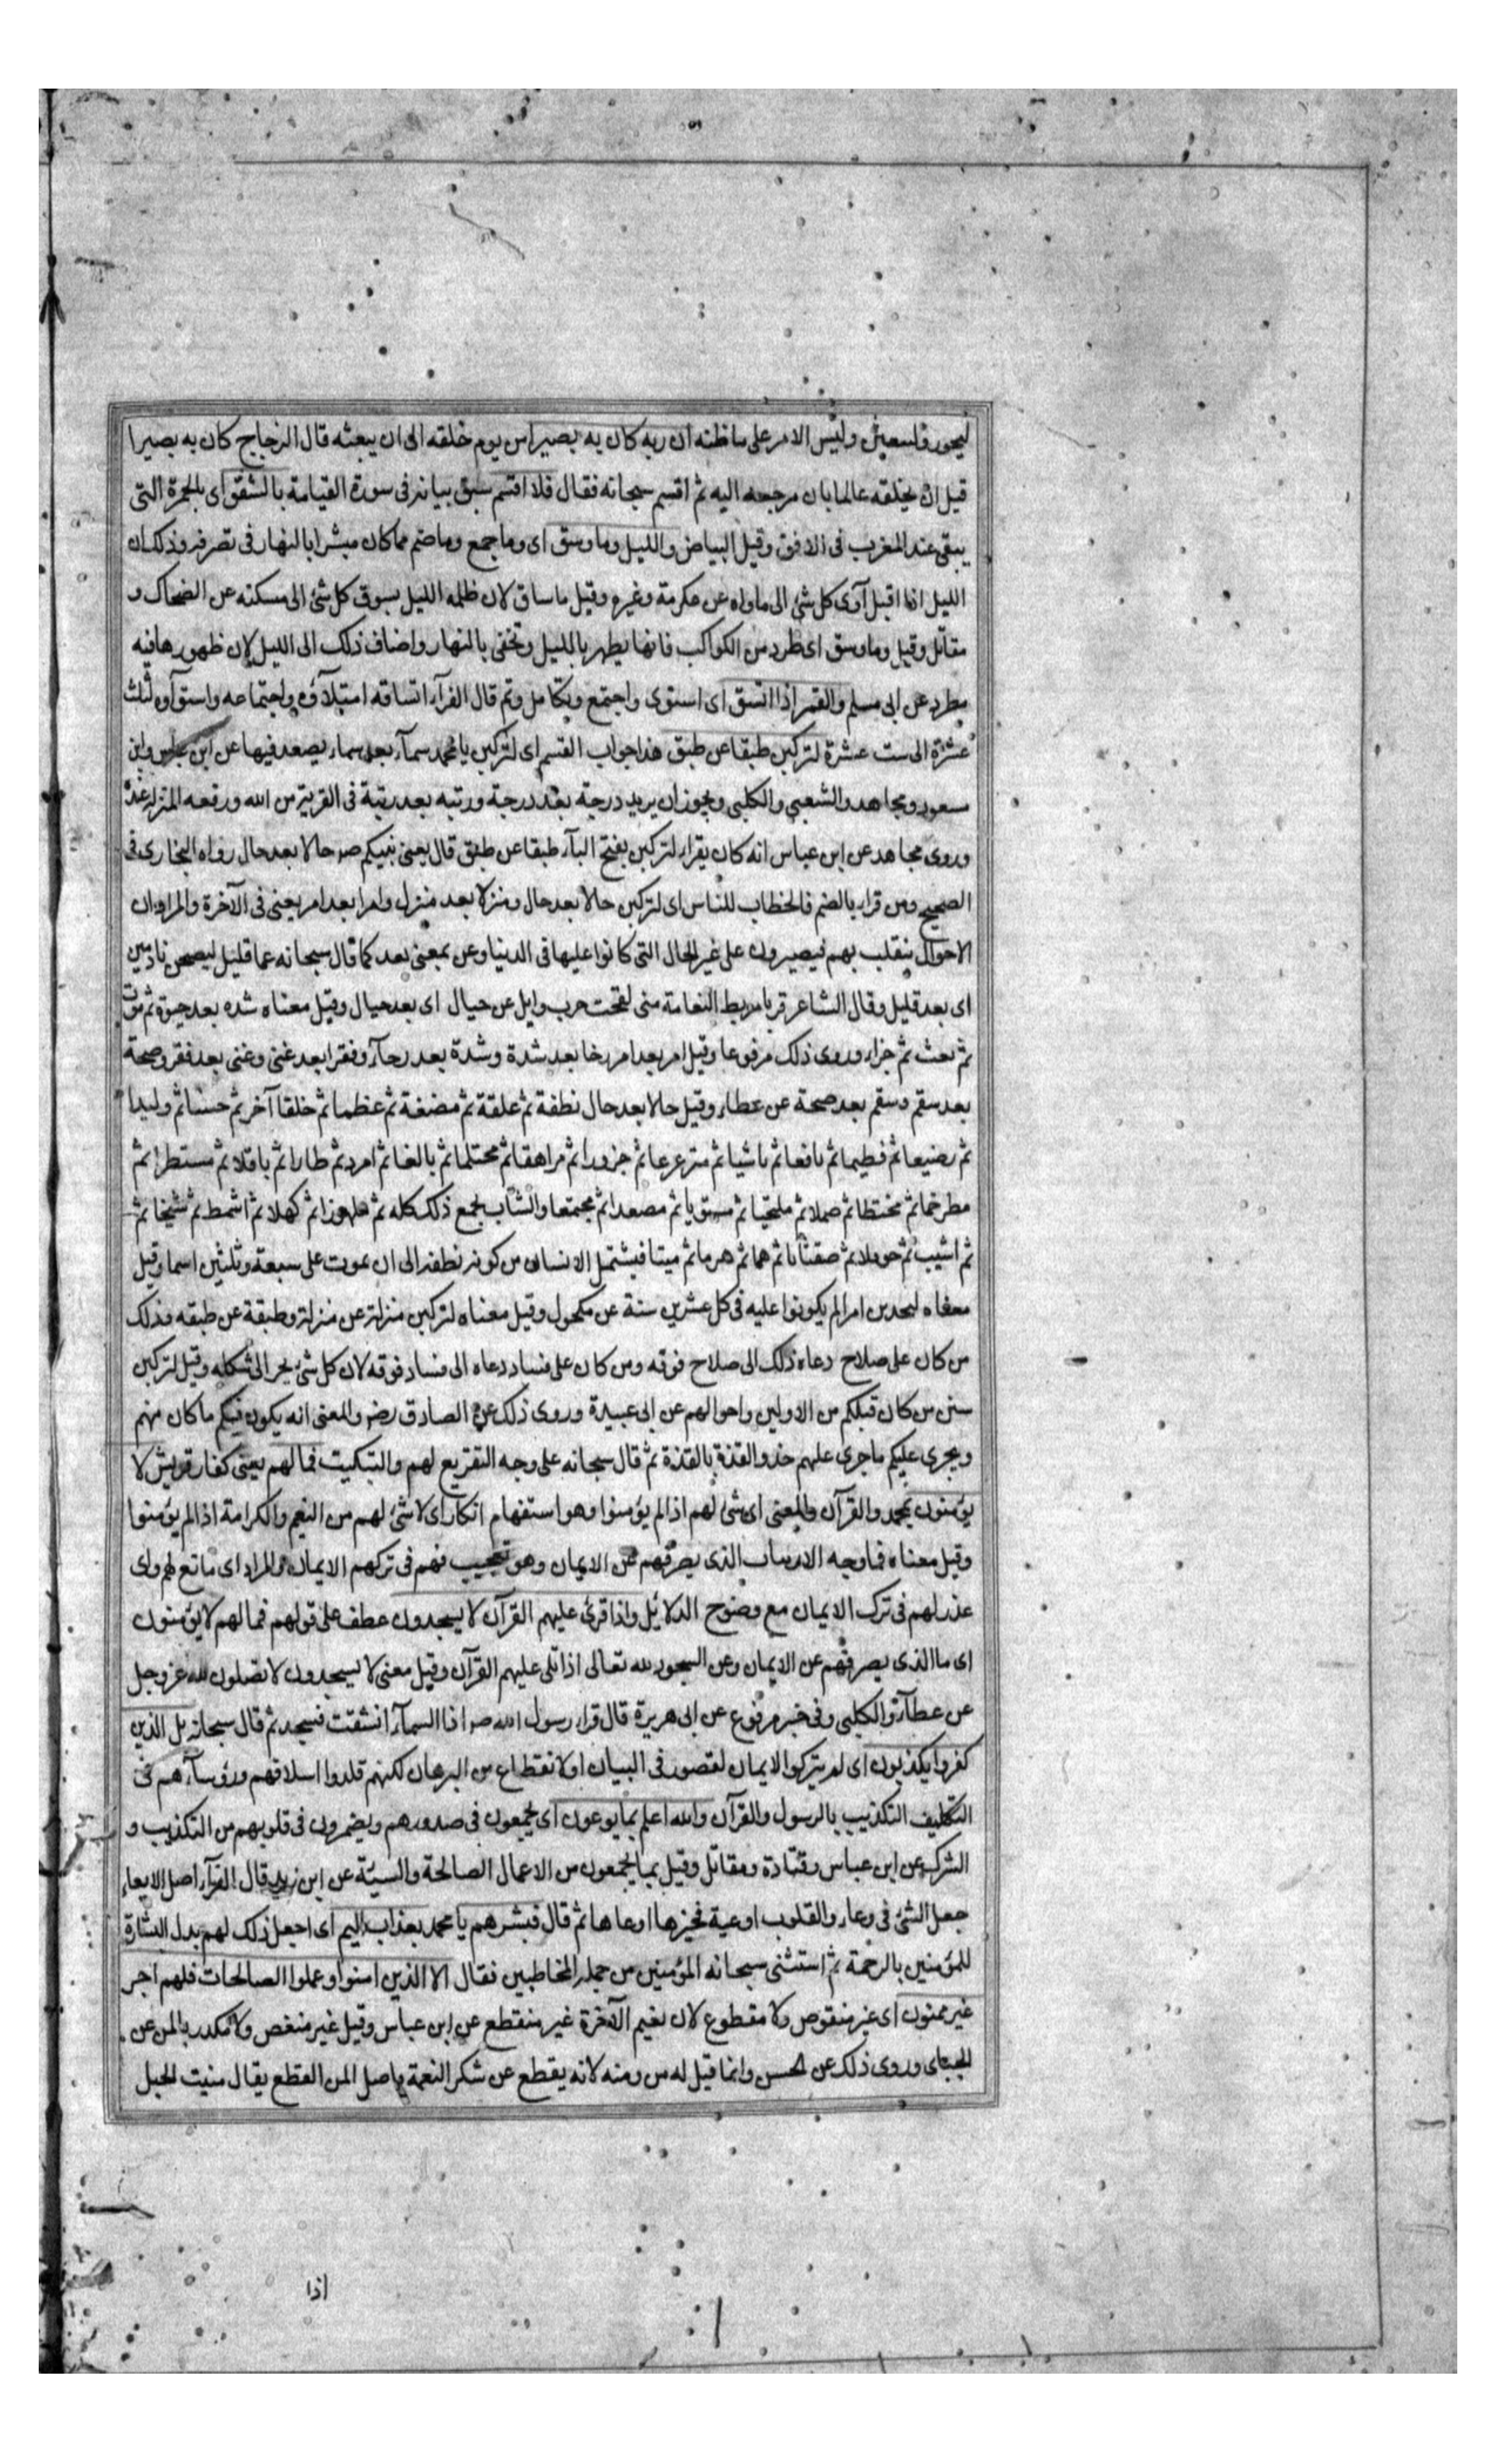 ليحور وليبعثن وليس الامر على ما ظنه ان ربه كان به بصيرا من يوم خلقه الى ان يبعثه قال الزجاج كان به بصيرا
قبل ان يخلقه عالما بان مرجعه اليه ثم اقسم سبحانه فقال فلا اقسم سبق بيانه فى سورة القيامة بالشفق اى بالحمرة التى
يبقى عند المغرب فى الافق وقيل البياض والليل وما وسق اى وما جمع وما ضم مما كان مبشرا بالنهار فى تصرفه وذلك ان
الليل اذا اقبل آوى كل شئ الى ماواه عن عكرمة وغيره وقيل ما ساق لان ظلمه الليل يسوق كل شئ الى مسكنه عن الضحاك و
مقاتل وقيل وما وسق اى طرد من الكواكب فانها يظهر بالليل وتخفى بالنهار واضاف ذلك الى الليل لان ظهورها فيه
مطرد عن ابى مسلم والقمر اذا اتسق اى استوى واجتمع وتكامل وتم قال الفرآء اتساقه امتلاؤه واجتماعه واستوآوه لثلث
عشرة الى ست عشرة لتركبن طبقا عن طبق هذا جواب القسم اى لتركبن يا محمد سمآء بعد سماء يصعد فيها عن ابن عباس وابن
مسعود ومجاهد والشعبي والكلبى ويجوز ان يريد درجة بعد درجة ورتبه بعد رتبة فى القربة من الله ورفعه المنزلة عنده
وروى مجاهد عن ابن عباس انه كان يقراء لتركبن بفتح البآء طبقا عن طبق قال يعنى نبيكم صر حالا بعد حال رواه البخارى فى
الصحيح ومن قراء بالضم فالخطاب للناس اى لتركبن حالا بعد حال ومنزلا بعد منزل وامرا بعد امر يعنى فى الآخرة والمراد ان
الاحوال ينقلب بهم فيصيرون على غير الحال التى كانوا عليها فى الدنيا وعن بمعنى بعد كما قال سبحانه عما قليل ليصبحن نادمين
اى بعد قليل وقال الشاعر قربا مربط النعامة منى لقحت حرب وايل عن حيال اى بعد حيال وقيل معناه شده بعد حيوة ثم موت
ثم بعث ثم جزاء وروى ذلك مرفوعا وقيل امر بعد امر رخا بعد شدة وشدة بعد رخآء وفقرا بعد غنى وغنى بعد فقر وصحة
بعد سقم وسقم بعد صحة عن عطاء وقيل حالا بعد حال نطفة ثم علقة ثم مضغة ثم عظما ثم خلقا آخر ثم جنينا ثم وليدا
ثم رضيعا ثم فطيما ثم يافعا ثم ناشيا ثم مترعرعا ثم حزورا ثم مراهقا ثم محتلما ثم بالغا ثم امرد ثم طارا ثم باقلا ثم مستطرا ثم
مطرخما ثم مختطا ثم صملا ثم ملتحيا ثم مستويا ثم مصعدا ثم مجتمعا والشاب يجمع ذلك كله ثم ملهوزا ثم كهلا ثم اشمط ثم شيخا ثم
ثم اشيب ثم حوقلا ثم صفتاتا ثم هما ثم هرما ثم ميتا فيشتمل الانسان من كونه نطفة الى ان يموت على سبعة وثلثين اسما وقيل
معناه لتحدثن امرا لم يكونوا عليه فى كل عشرين سنة عن مكحول وقيل معناه لتركبن منزلة عن منزلة وطبقة عن طبقه وذلك
من كان على صلاح دعاه ذلك الى صلاح فوقه ومن كان على فساد دعاه الى فساد فوقه لان كل شئ يجر الى شكله وقيل لتركبن
سنن من كان قبلكم من الاولين واحوالهم عن ابى عبيدة وروى ذلك عن الصادق رضر والمعنى انه يكون فيكم ما كان منهم
ويجرى عليكم ما جرى عليهم حذو القذة بالقذة ثم قال سبحانه على وجه التقريع لهم والتبكيت فما لهم يعنى كفار قريش لا
يؤمنون بمحمد والقرآن والمعنى اى شئ لهم اذا لم يؤمنوا وهو استفهام انكار اى لا شئ لهم من النعيم والكرامة اذا لم يؤمنوا
وقيل معناه فما وجه الارتياب الذى يصرفهم عن الايمان وهو تعجيب منهم فى تركهم الايمان والمراد اى مانع لهم واى
عذر لهم فى ترك الايمان مع وضوح الدلائل واذا قرئ عليهم القرآن لا يسجدون عطف على قولهم فما لهم لا يؤمنون
اى ما الذى يصرفهم عن الايمان وعن السجود لله تعالى اذا تلى عليهم القرآن وقيل معنى لا يسجدون لا تصلون لله عز وجل
عن عطآء والكلبى وفى خبر مرفوع عن ابى هريرة قال قراء رسول الله صر اذا السمآء انشقت فسجد ثم قال سبحانه بل الذين
كفروا يكذبون اى لم يتركوا الايمان لقصور فى البيان او لانقطاع من البرهان لكنهم قلدوا اسلافهم ورؤسآءهم فى
التكليف التكذيب بالرسول والقرآن والله اعلم بما يوعون اى يجمعون فى صدورهم ويضمرون فى قلوبهم من التكذيب و
الشرك عن ابن عباس وقتادة ومقاتل وقيل بما يجمعون من الاعمال الصالحة والسيئة عن ابن زيد قال الفرآء اصل الايعاء
جعل الشئ فى وعاء والقلوب اوعية فخيرها اوعاها ثم قال فبشرهم يا محمد بعذاب اليم اى اجعل ذلك لهم بدل البشارة
للمؤمنين بالرحمة ثم استثنى سبحانه المؤمنين من جملة المخاطبين فقال الا الذين امنوا وعملوا الصالحات فلهم اجر
غير ممنون اى غير منقوص ولا مقطوع لان نعيم الآخرة غير منقطع عن ابن عباس وقيل غير منغص ولا مكدر بالمن عن
الجبباى وروى ذلك عن الحسن وانما قيل له من ومنه لانه يقطع عن شكر النعمة واصل المن القطع يقال مننت الحبل
اذا